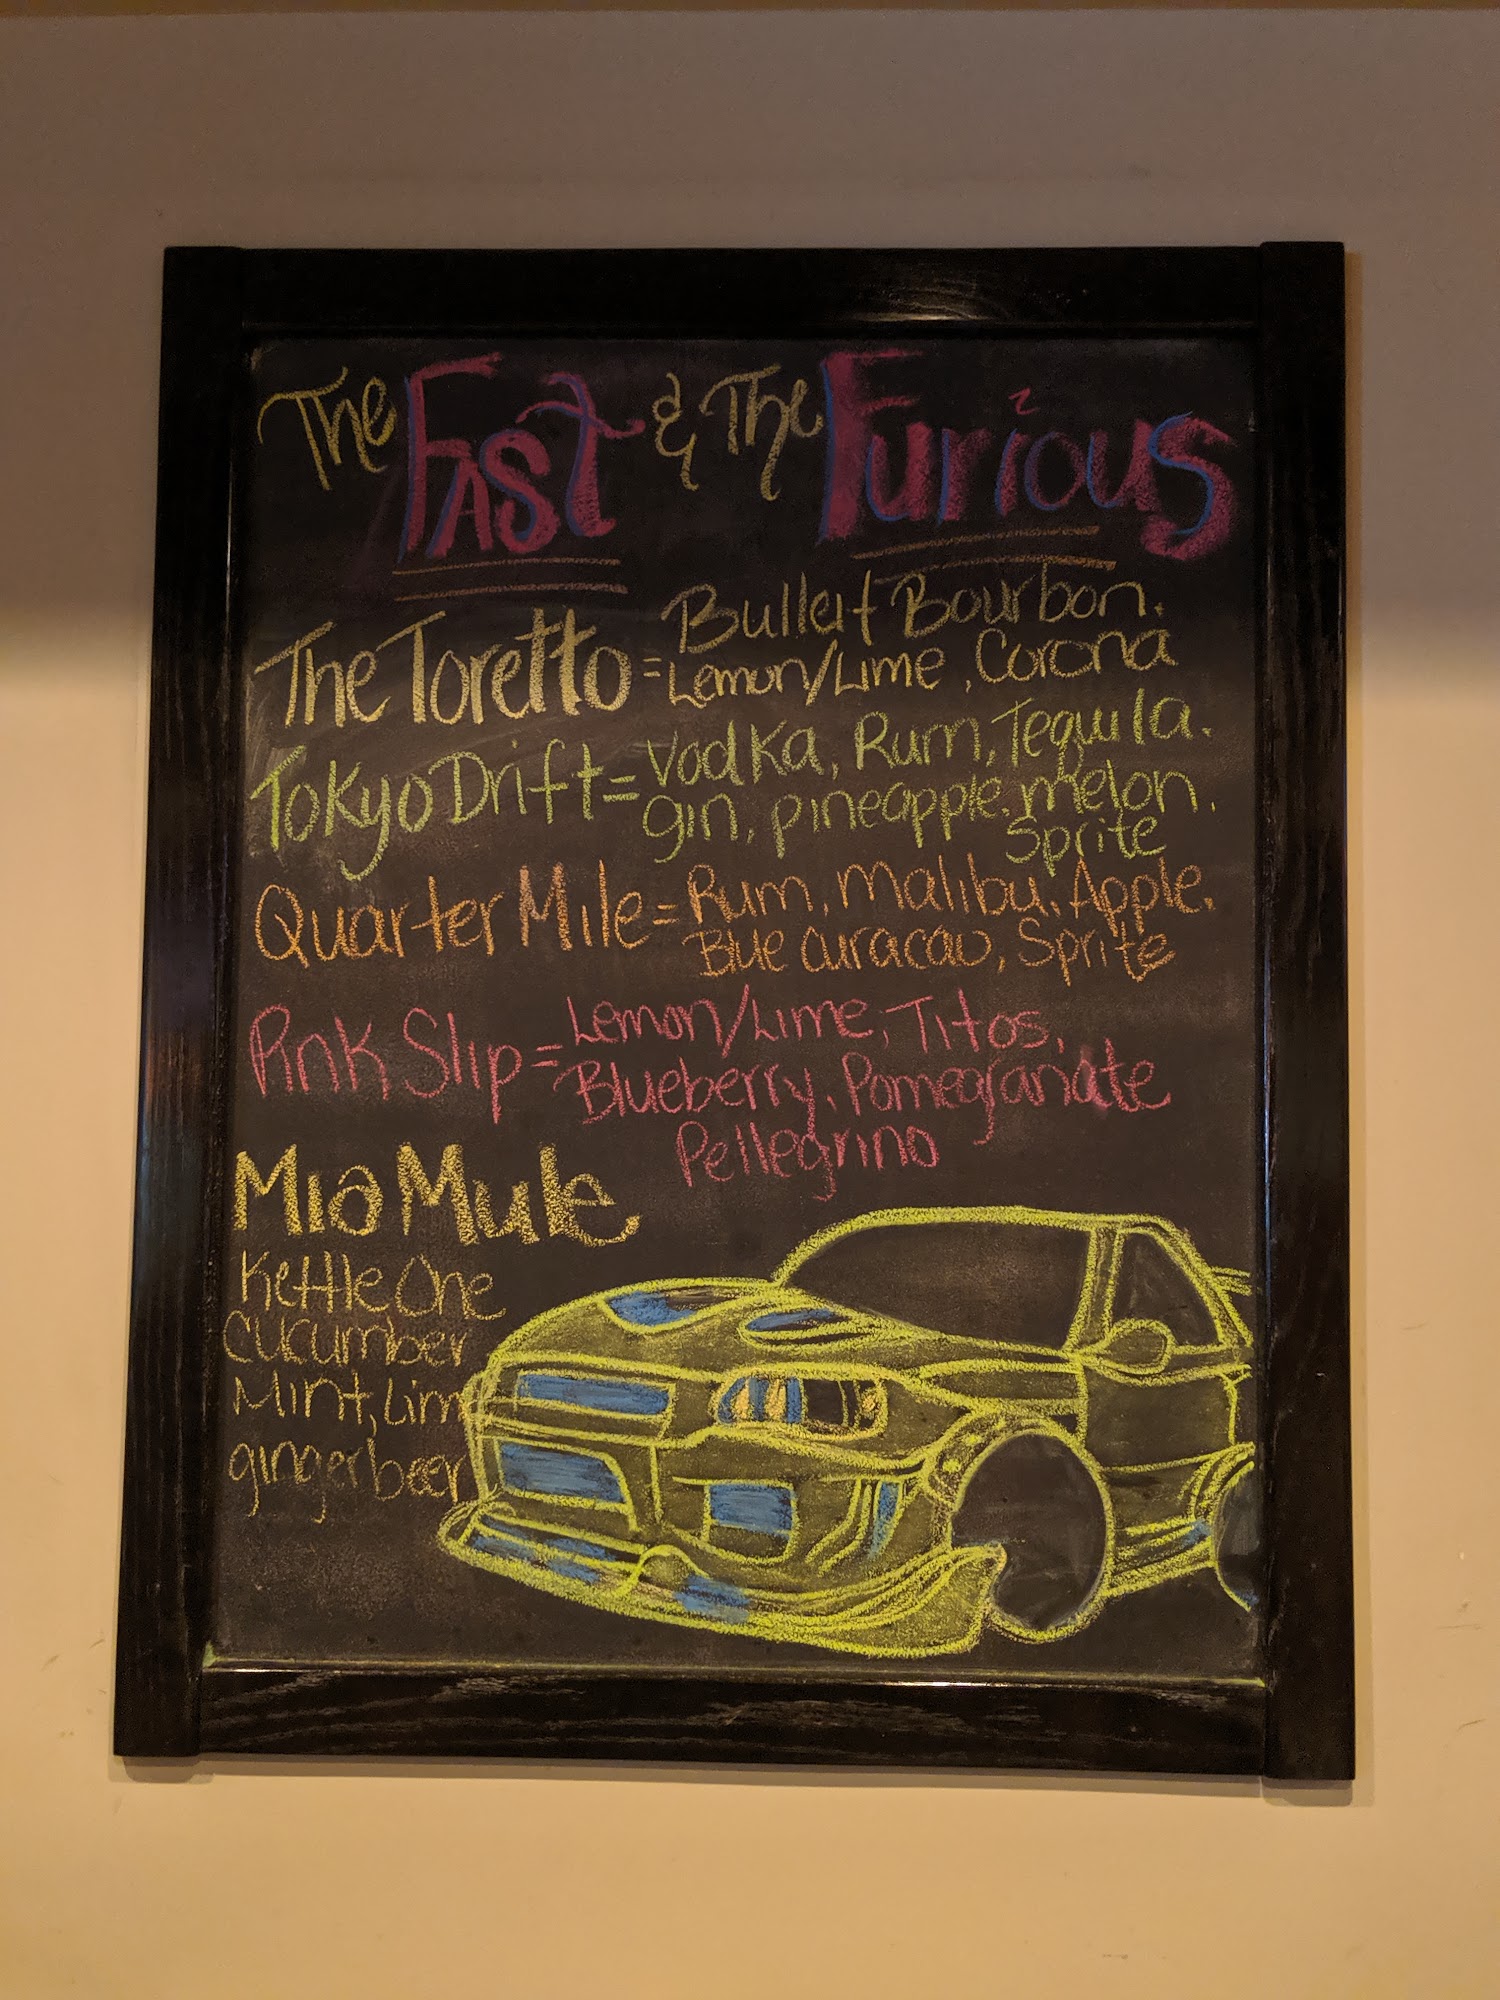 The Fast & The Furious
The Toretto = Bulleit Bourbon.
Lemon/Lime, Corona
Tokyo Drift = Vodka, Rum, Tequila.
gin, pineapple, melon.
Sprite
Quarter Mile = Rum, Malibu, Apple.
Blue Curacao, Sprite
Pink Slip = Lemon/Lime, Titos,
Blueberry, Pomegranate
Pellegrino
Mia Mule
Kettle One
Cucumber
Mint, Lim
gingerbeer